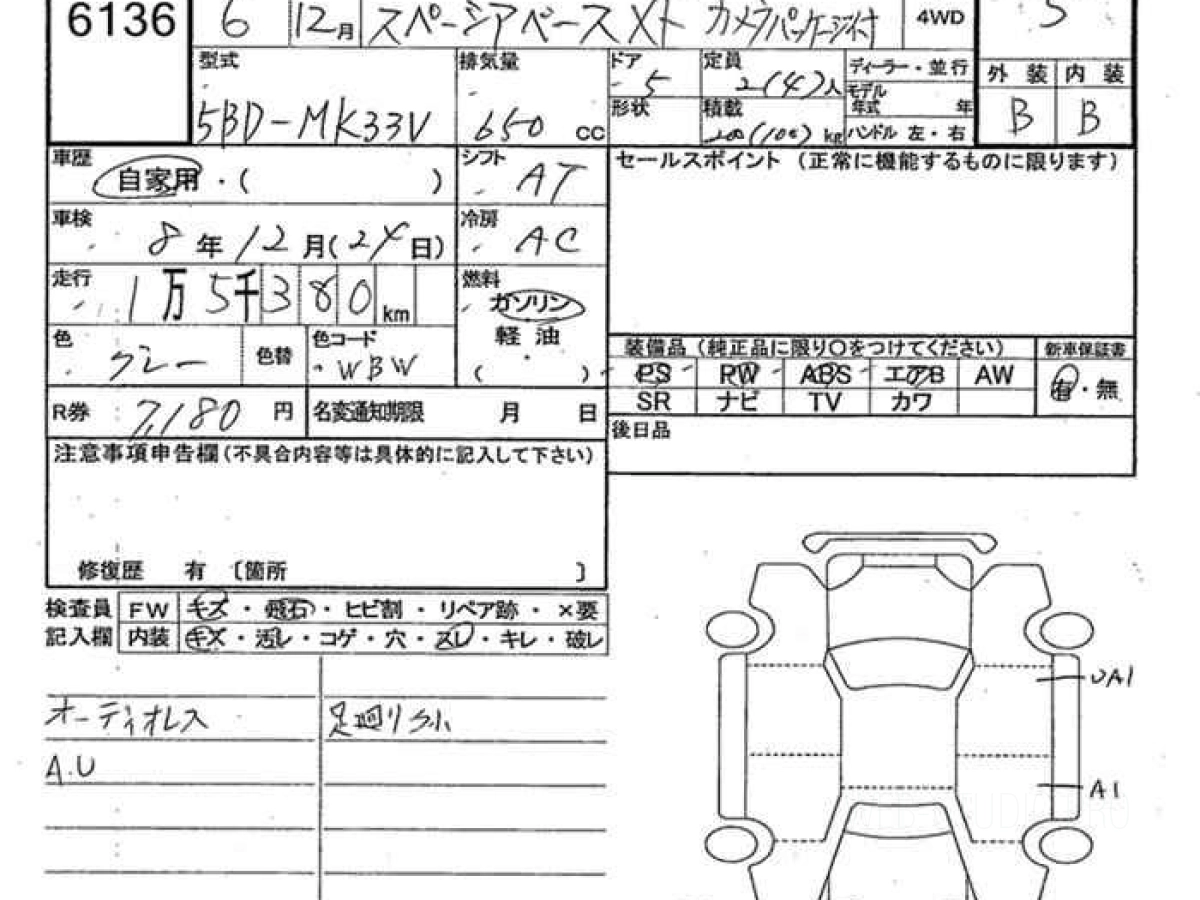 6136 6 12月 スペーシアベース XF カメラパッケージ付 4WD 5
型式 排気量 ドア 5 定員 2(4)人 ディーラー・並行 外装 内装
5BD-MK33V 650 CC 形状 積載 200(100)kg モデル年式 年 B B
ハンドル 左・右
車歴 自家用・( ) シフト AT セールスポイント (正常に機能するものに限ります)
車検 8年12月(24日) 冷房 AC
走行 1万5千380km 燃料 ガソリン
軽油
( )
色 グレー 色替 色コード WBW
装備品(純正品に限り○をつけてください) 新車保証書
PS PW ABS エアB AW 有・無
SR ナビ TV カワ
R券 7,180円 名変通知期限 月 日
後日品
注意事項申告欄(不具合内容等は具体的に記入して下さい)
修復歴 有 〔箇所 〕
検査員 FW キズ・飛石・ヒビ割・リペア跡・×要
記入欄 内装 キズ・汚レ・コゲ・穴・スレ・キレ・破レ
オーディオレス 足廻りサビ小
A.U
UA1
A1